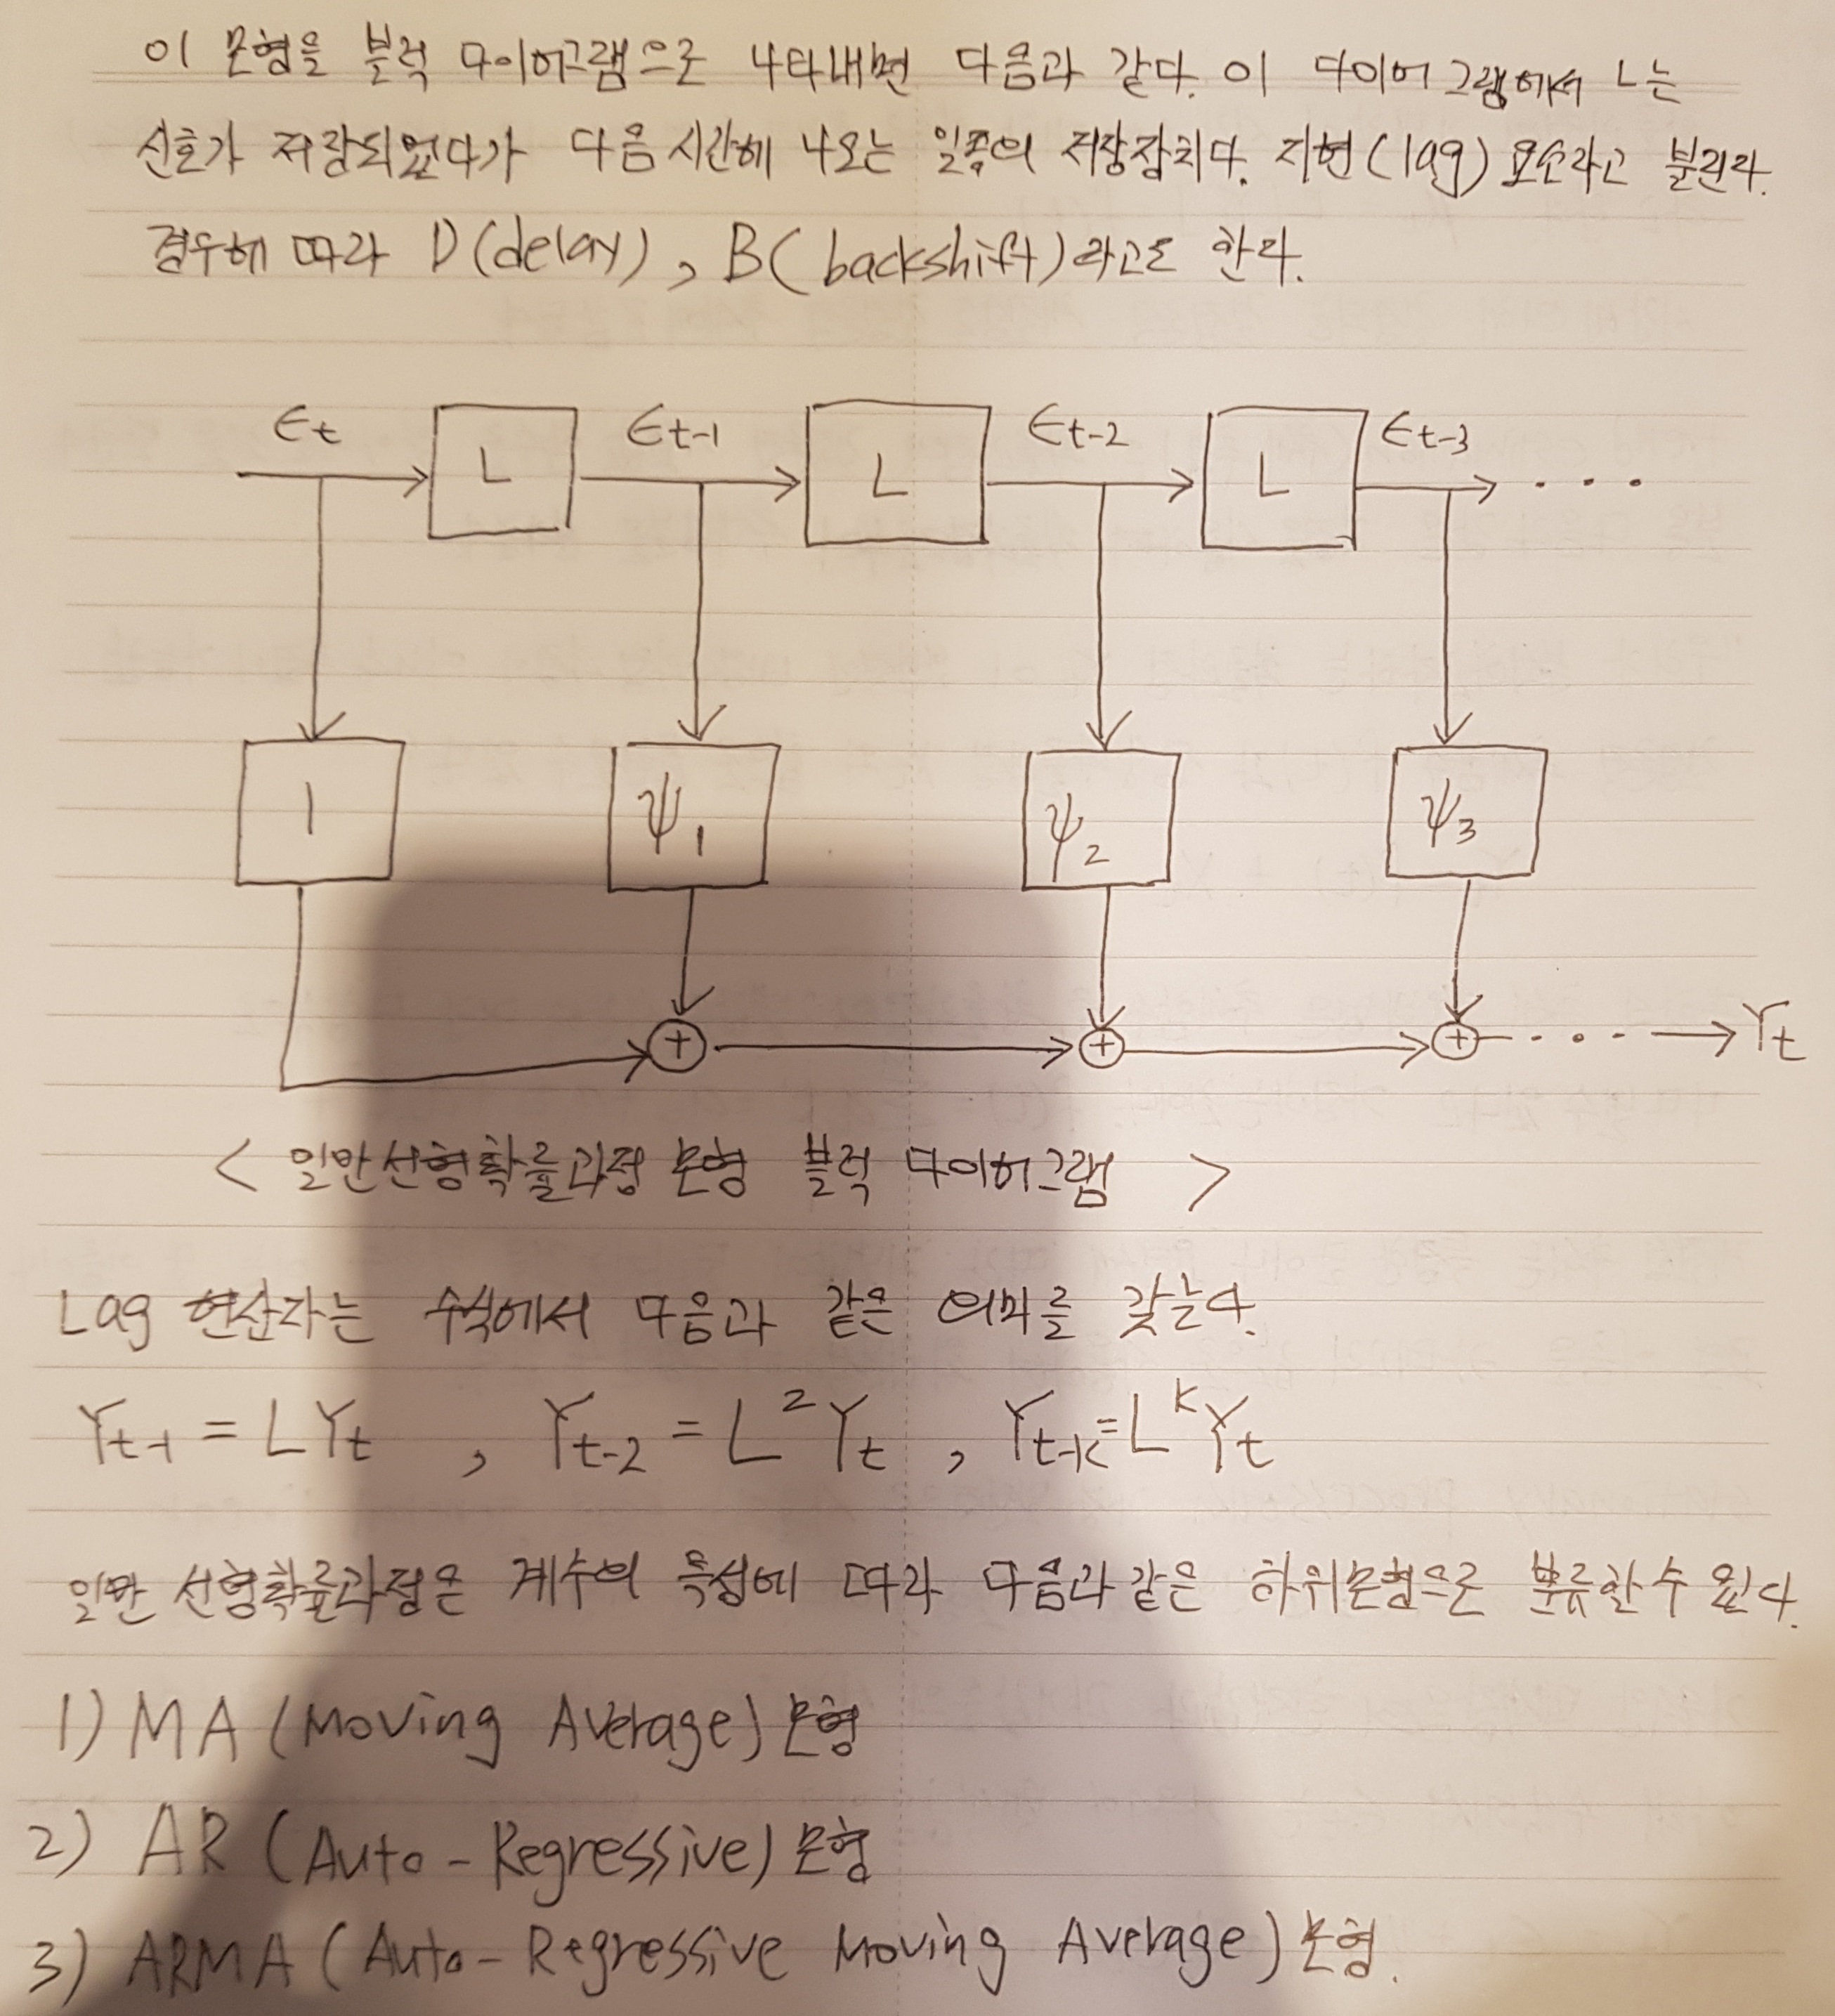 이 모형을 블럭 다이어그램으로 나타내면 다음과 같다. 이 다이어그램에서 L는
신호가 저장되었다가 다음 시간에 나오는 일종의 저장장치다. 지연(lag) 요소라고 불린다.
경우에 따라 D(delay), B(backshift)라고도 한다.
εt εt-1 εt-2 εt-3
L L L ・・・
1 ψ1 ψ2 ψ3
+ + + ・・・ Yt
< 일반선형확률과정 모형 블럭 다이어그램 >
Lag 연산자는 수식에서 다음과 같은 의미를 갖는다.
Yt-1 = LYt , Yt-2 = L²Yt , Yt-k = LᵏYt
일반 선형확률과정은 계수의 특성에 따라 다음과 같은 하위모형으로 분류할 수 있다.
1) MA (Moving Average) 모형
2) AR (Auto-Regressive) 모형
3) ARMA (Auto-Regressive Moving Average) 모형.